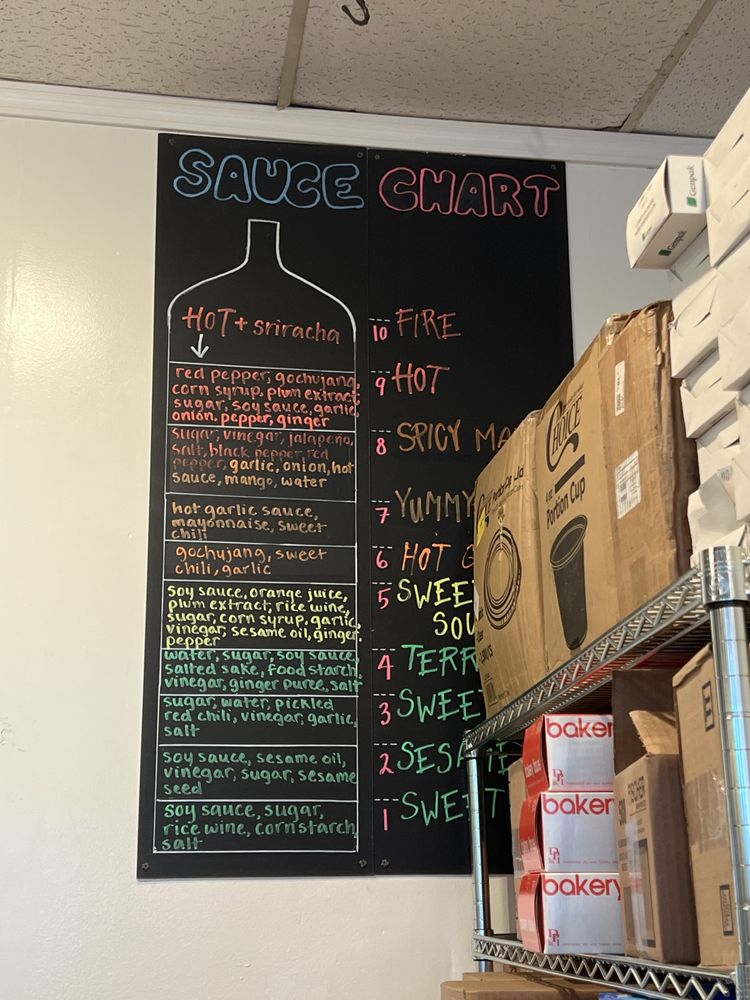 SAUCE CHART
HOT + sriracha
red pepper, gochujang,
corn syrup, plum extract,
sugar, soy sauce, garlic,
onion, pepper, ginger
sugar, vinegar, jalapeño,
salt, black pepper, red
pepper, garlic, onion, hot
sauce, mango, water
hot garlic sauce,
mayonnaise, sweet
chili
gochujang, sweet
chili, garlic
soy sauce, orange juice,
plum extract, rice wine,
sugar, corn syrup, garlic,
vinegar, sesame oil, ginger,
pepper
water, sugar, soy sauce,
salted sake, food starch,
vinegar, ginger puree, salt
sugar, water, pickled
red chili, vinegar, garlic,
salt
soy sauce, sesame oil,
vinegar, sugar, sesame
seed
soy sauce, sugar,
rice wine, cornstarch,
salt
10 FIRE
9 HOT
8 SPICY
7 YUMMY
6 HOT
5
4
3
2
1
Genpak
Genpak
CHOICE
Portion Cup
bakery
bakery
bakery